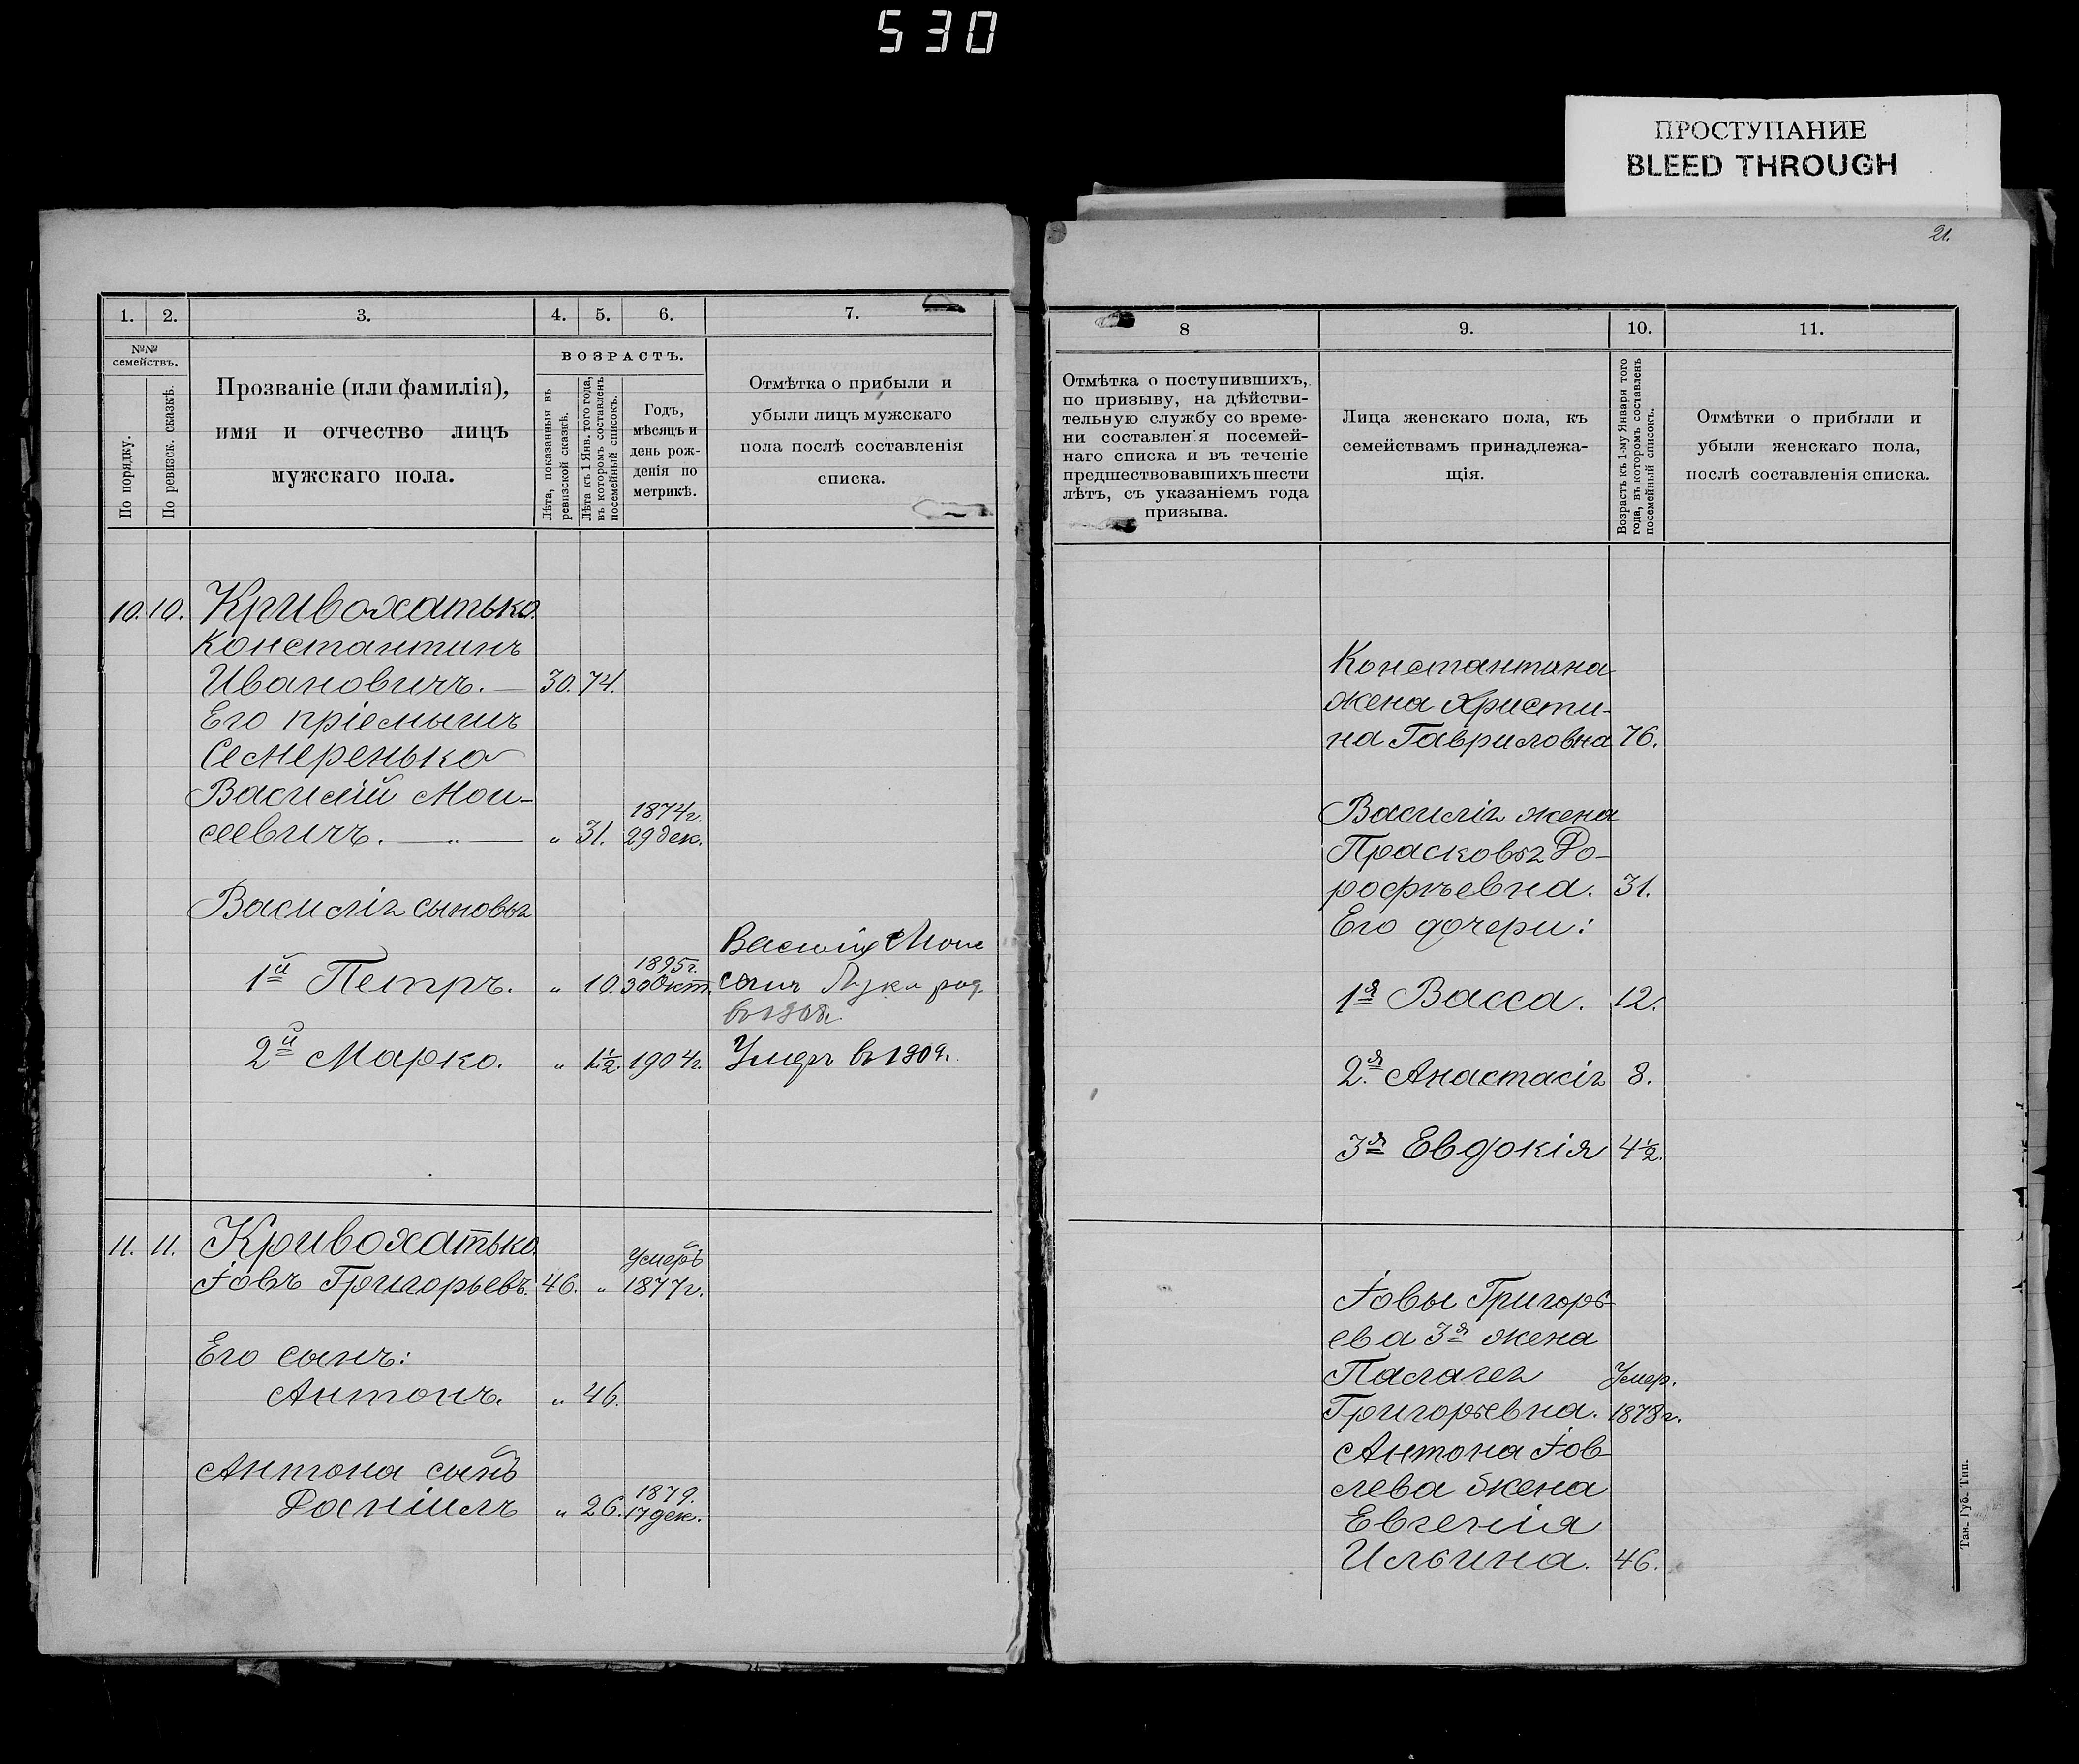 530
ПРОСТУПАНИЕ
BLEED THROUGH
1. 2. 3. 4. 5. 6. 7.
№№ семействъ.
По порядку.
По ревизск. сказкѣ.
Прозваніе (или фамилія),
имя и отчество лицъ
мужскаго пола.
ВОЗРАСТЪ.
Лѣта, показанныя въ
ревизской сказкѣ.
Лѣта къ 1 Янв. того года,
въ которомъ составленъ
посемейный списокъ.
Годъ,
мѣсяцъ и
день рож-
денія по
метрикѣ.
Отмѣтка о прибыли и
убыли лицъ мужскаго
пола послѣ составленія
списка.
10. 10. Кривохатько
Константинъ
Ивановичъ. — 30. 74.
Его пріемышъ
Семеренько
Василій Мои-
сеевичъ. — „ — „ 31. 1874г.
29 дек.
Василія сыновья
1й Петръ. „ 10. 1895г.
30 Окт.
Василія Мои
сынъ Лука род.
в 1908г.
2й Марко. „ 1½. 1904г. Умеръ в 1909г.
11. 11. Кривохатько
Іовъ Григорьевъ. 46. „ Умеръ
1877г.
Его сынъ:
Антонъ. „ 46.
Антона сынъ
Даніилъ „ 26. 1879.
17 дек.
21.
8 9. 10. 11.
Отмѣтка о поступившихъ,
по призыву, на дѣйстви-
тельную службу со време-
ни составленія посемей-
наго списка и въ теченіе
предшествовавшихъ шести
лѣтъ, съ указаніемъ года
призыва.
Лица женскаго пола, къ
семействамъ принадлежа-
щія.
Возрастъ къ 1-му Января того
года, въ которомъ составленъ
посемейный списокъ.
Отмѣтки о прибыли и
убыли женскаго пола,
послѣ составленія списка.
Константина
жена Христи-
на Гавриловна 76.
Василія жена
Прасковья До-
рофѣевна. 31.
Его дочери:
1я Васса. 12.
2.я Анастасія 8.
3я Евдокія 4½.
Іовы Григорь-
ева 3я жена
Палагея Умер.
Григорьевна. 1878г.
Антона Іов-
лева жена
Евгенія
Ильина. 46.
Тав. Губ. Тип.